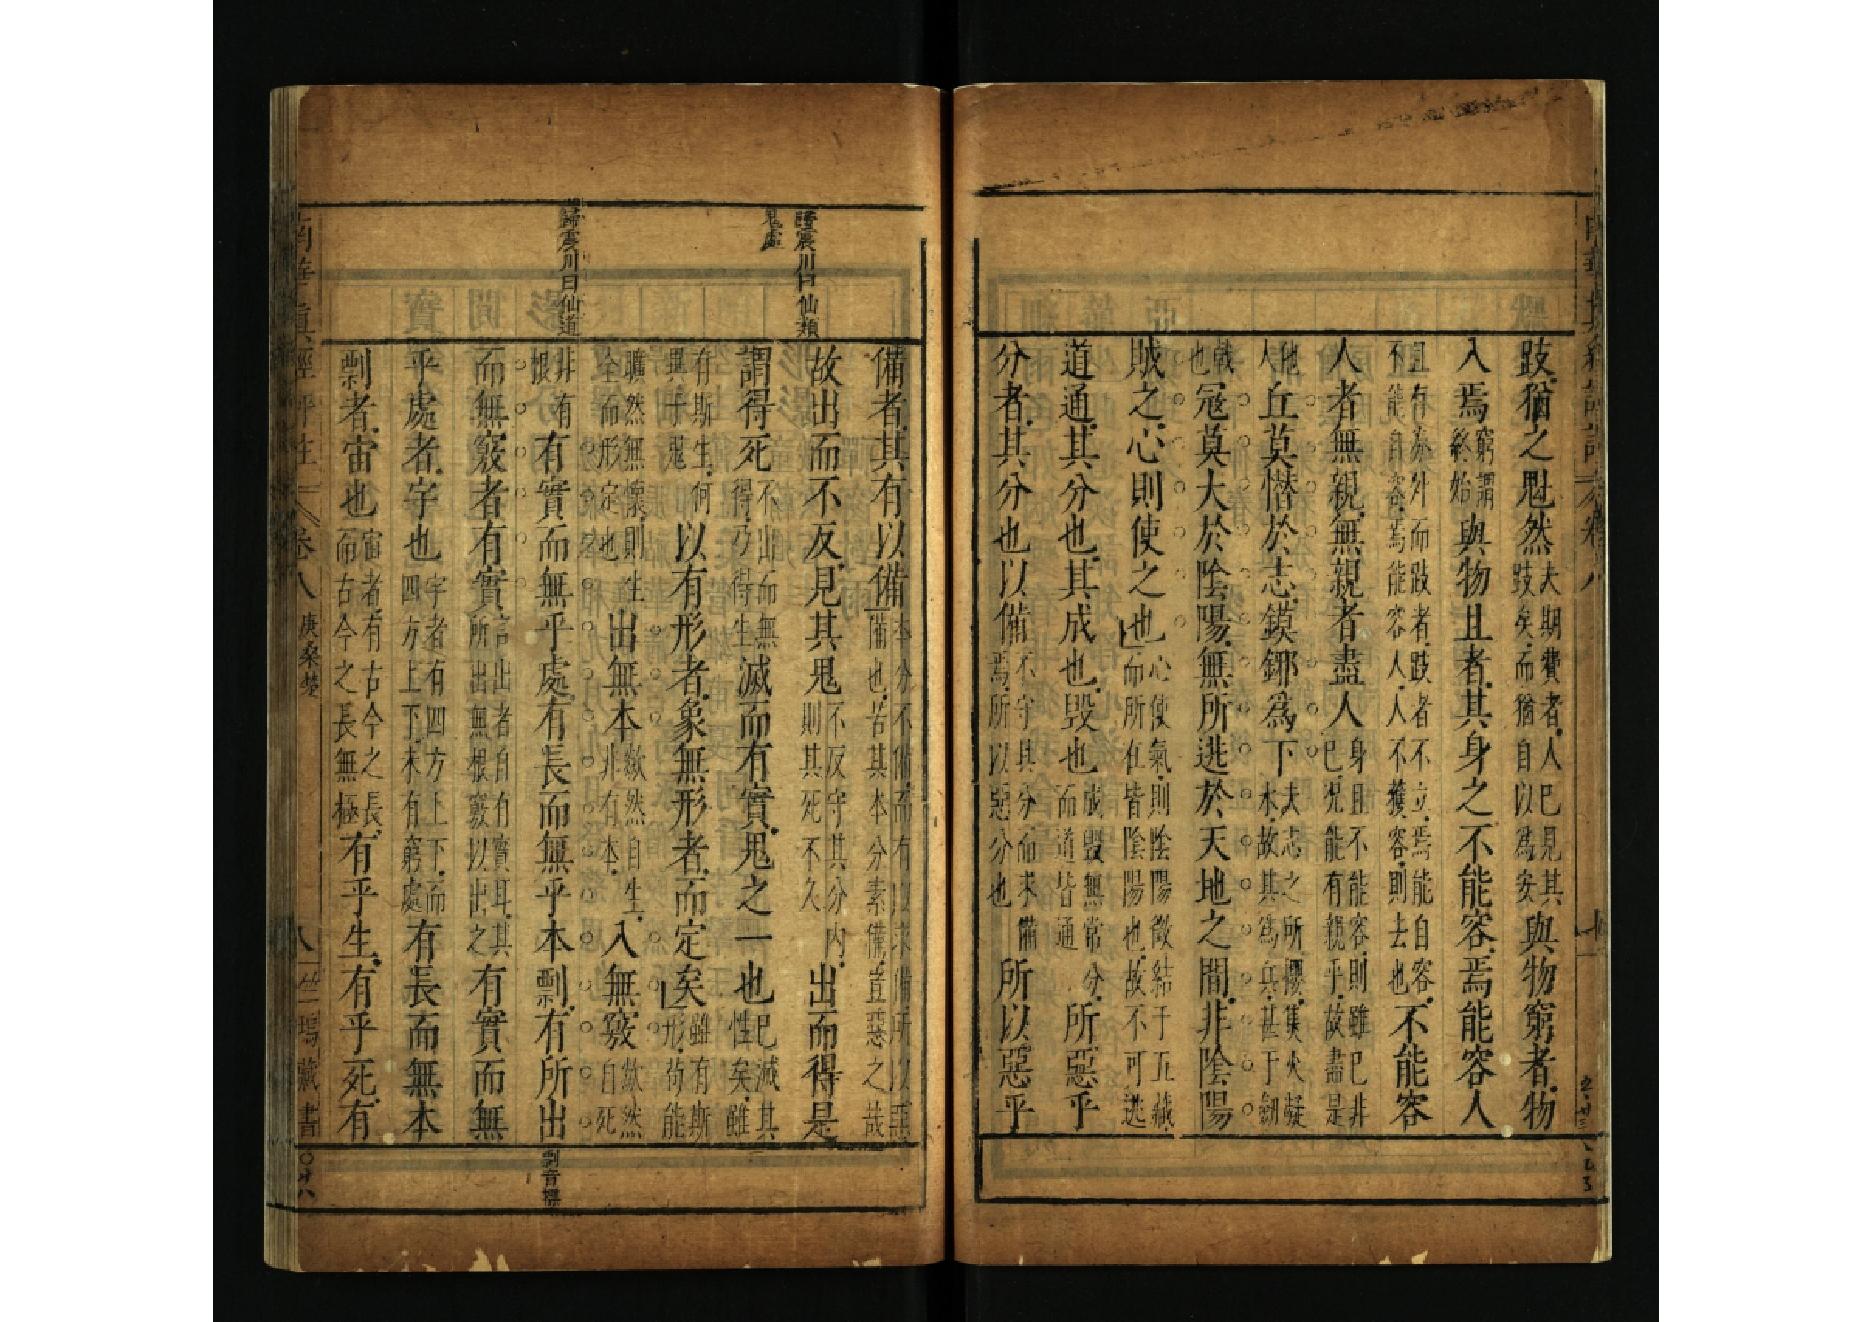 跂猶之魁然大期費者人已見其跂矣而猶自以爲安與物窮者物
入焉窮謂終始與物且者其身之不能容焉能容人
且有券外而跂者跂者不立焉能自容不能自容焉能容人人不獲容則去也不能容
人者無親無親者盡人身且不能容則雖已非已况能有親乎故盡是
他人丘莫憯於志鏌鋣爲下夫志之所攖燋火凝冰故其爲兵甚于劒
戟也冦莫大於陰陽無所逃於天地之間非陰陽
賊之心則使之也心使氣則陰陽徵結于五藏而所在皆陰陽也故不可逃
道通其分也其成也毀也成毀無常分而道皆通所惡乎
分者其分也以備不守其分而求備焉所以惡分也所以惡乎
備者其有以備本分不備而有以求備所以惡備也若其本分素備豈惡之哉
故出而不反見其鬼不反守其分內則其死不久出而得是
謂得死不出而無得乃得生滅而有實鬼之一也已滅其性矣雖
有斯生何異于鬼以有形者象無形者而定矣雖有斯形苟能
曠然無懷則生全而形定也出無本歘然自生非有本入無竅歘然自死
非有根有實而無乎處有長而無乎本剽有所出
而無竅者有實言出者自有實耳其所出無根竅以出之有實而無
乎處者宇也宇者有四方上下而四方上下未有窮處有長而無本
剽者宙也宙者有古今之長而古今之長無極有乎生有乎死有
歸震川曰仙類鬼處
歸震川曰仙道
剽音摽
南華眞經評註 卷八 庚桑楚